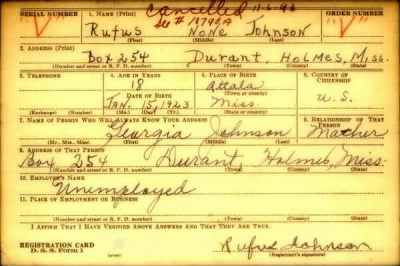 Cancelled 11-6-43
See # 14794A
SERIAL NUMBER 1. NAME (Print) ORDER NUMBER
V Rufus None Johnson V
(First) (Middle) (Last)
2. ADDRESS (Print)
Box 254 Durant, Holmes, Miss.
(Number and street or R. F. D. number) (Town) (County) (State)
3. TELEPHONE 4. AGE IN YEARS 5. PLACE OF BIRTH 6. COUNTRY OF CITIZENSHIP
18 Attala
DATE OF BIRTH (Town or county)
Jan. 15, 1923 Miss. U.S.
(Exchange) (Number) (Mo.) (Day) (Yr.) (State or country)
7. NAME OF PERSON WHO WILL ALWAYS KNOW YOUR ADDRESS 8. RELATIONSHIP OF THAT PERSON
Georgia Johnson Mother
(Mr., Mrs., Miss) (First) (Middle) (Last)
9. ADDRESS OF THAT PERSON
Box 254 Durant, Holmes, Miss.
(Number and street or R. F. D. number) (Town) (County) (State)
10. EMPLOYER'S NAME
Unemployed
11. PLACE OF EMPLOYMENT OR BUSINESS
(Number and street or R. F. D. number) (Town) (County) (State)
I AFFIRM THAT I HAVE VERIFIED ABOVE ANSWERS AND THAT THEY ARE TRUE.
REGISTRATION CARD
D. S. S. Form 1
Rufus Johnson
(Registrant's signature)